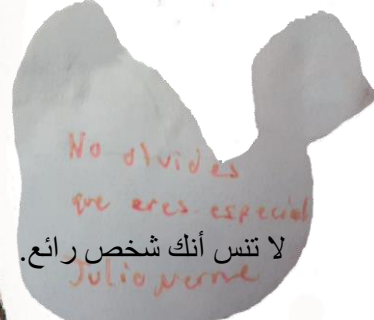 No olvides
que eres especial
لا تنس أنك شخص رائع.
Julio verne